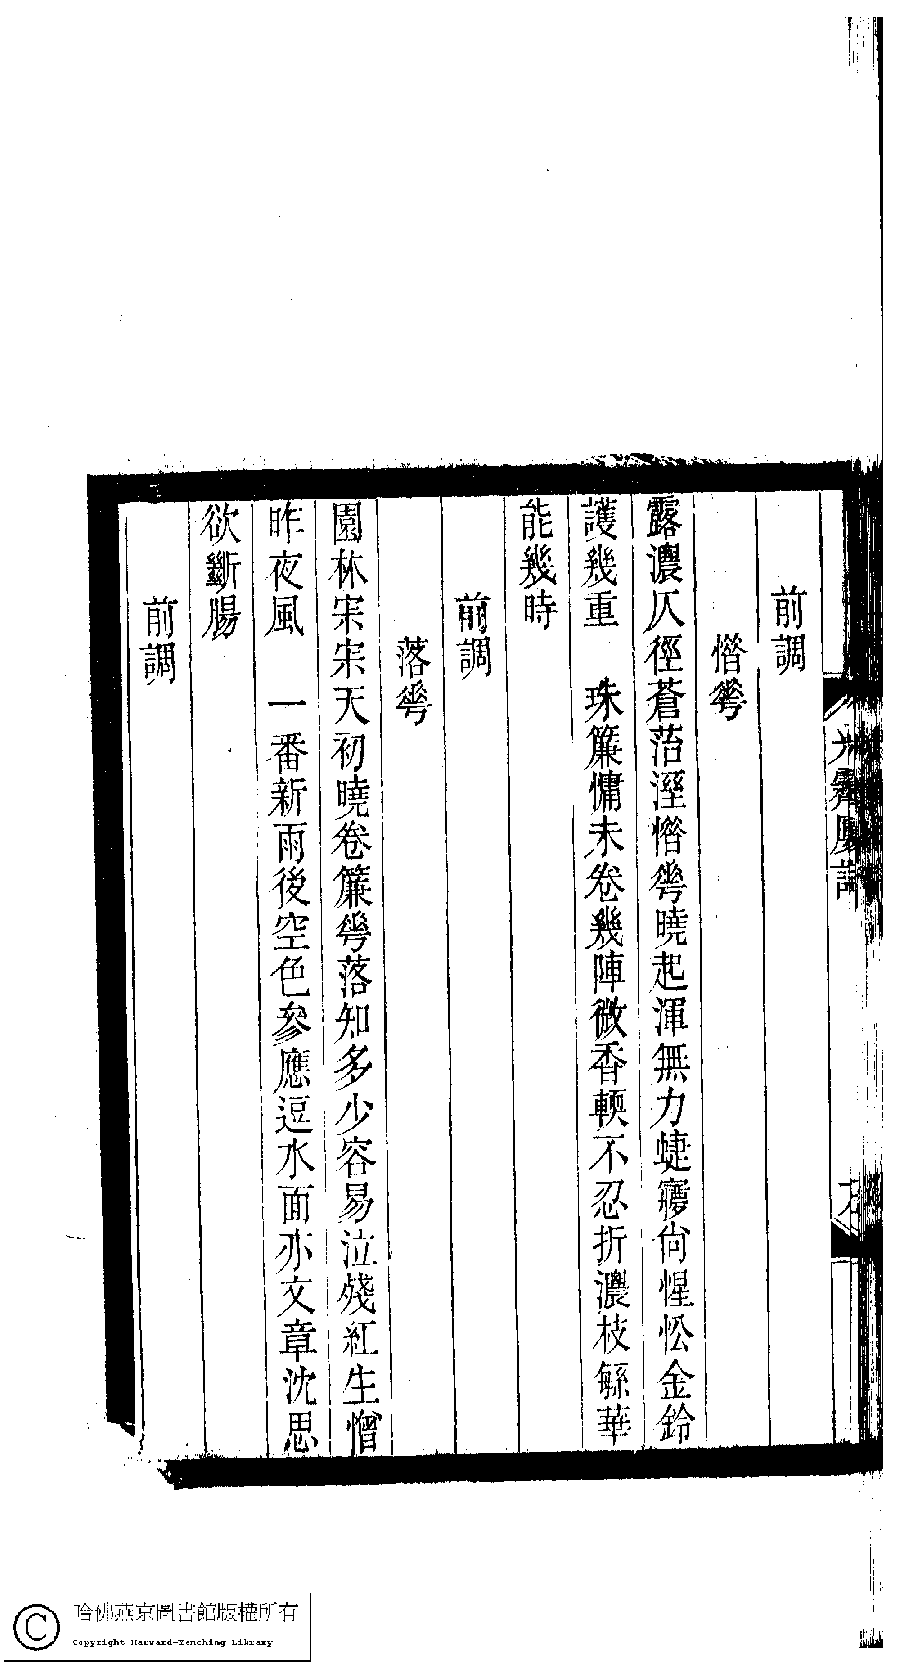 前調
惜蕐
露濃仄徑蒼苔溼惜蕐曉起渾無力蜨㝱尙惺忪金鈴
護幾重　珠簾慵未卷幾陣微香輭不忍折濃枝緐華
能幾時
前調
落蕐
園林宋宋天初曉卷簾蕐落知多少容易泣殘紅生憎
昨夜風　一番新雨後空色參應逗水面亦文章沈思
欲斷腸
前調
哈佛燕京圖書館版權所有
Copyright Harvard-Yenching Library